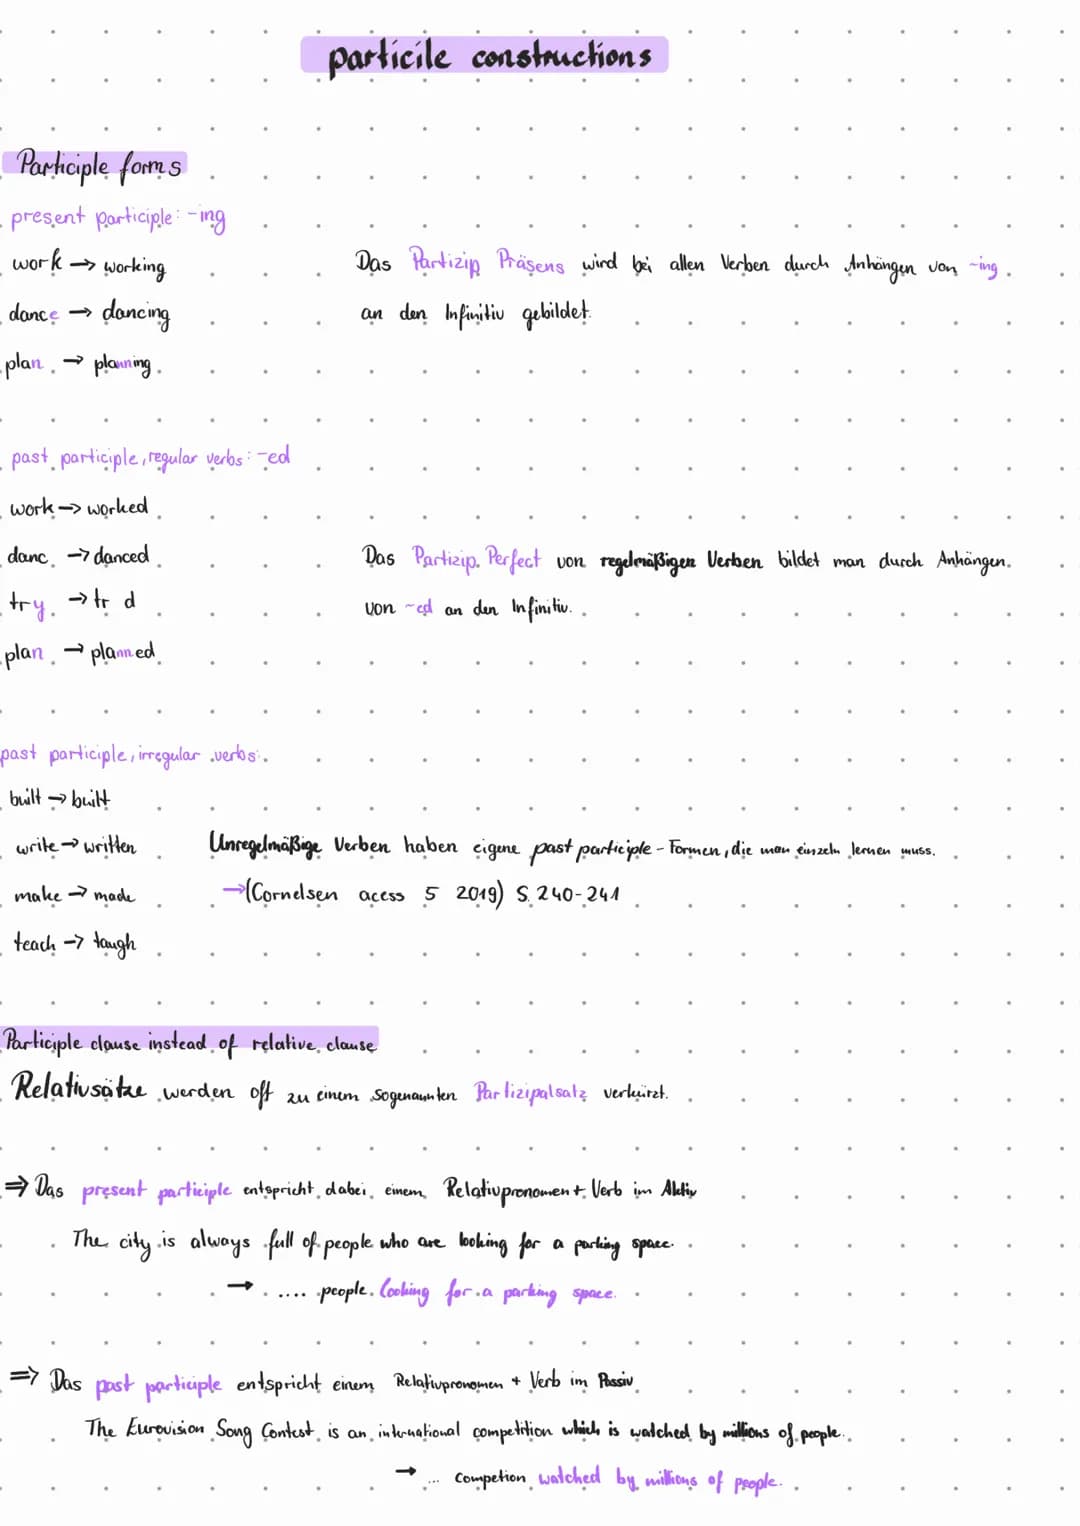 particile constructions
Participle forms
present participle: -ing
work → working
Das Partizip Präsens wird bei allen Verben durch Anhängen von -ing
dance → dancing
an den Infinitiv gebildet.
plan → planning
past participle, regular verbs: -ed
work → worked
danc → danced
Das Partizip Perfect von regelmäßigen Verben bildet man durch Anhängen
try → tr d
von -ed an den Infinitiv.
plan → planned
past participle, irregular verbs:
built → built
write → written
Unregelmäßige Verben haben eigene past participle - Formen, die man einzeln lernen muss.
make → made
→ (Cornelsen acess 5 2019) S. 240-241
teach → taugh
Participle clause instead of relative clause
Relativsätze werden oft zu einem sogenannten Partizipalsatz verkürzt.
⇒ Das present participle entspricht dabei einem Relativpronomen + Verb im Aktiv
The city is always full of people who are looking for a parking space.
→ .... people looking for a parking space.
⇒ Das past participle entspricht einem Relativpronomen + Verb im Passiv
The Eurovision Song Contest is an international competition which is watched by millions of people.
→ ... competion watched by millions of people.